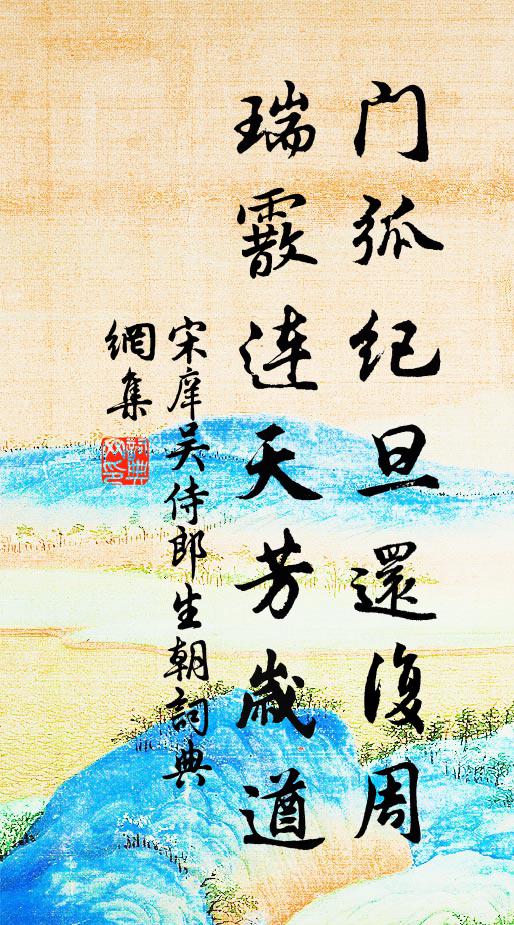 门弧纪旦還復周
瑞霰连天芳岁遒
宋庠吴侍郎生朝詞典
網集